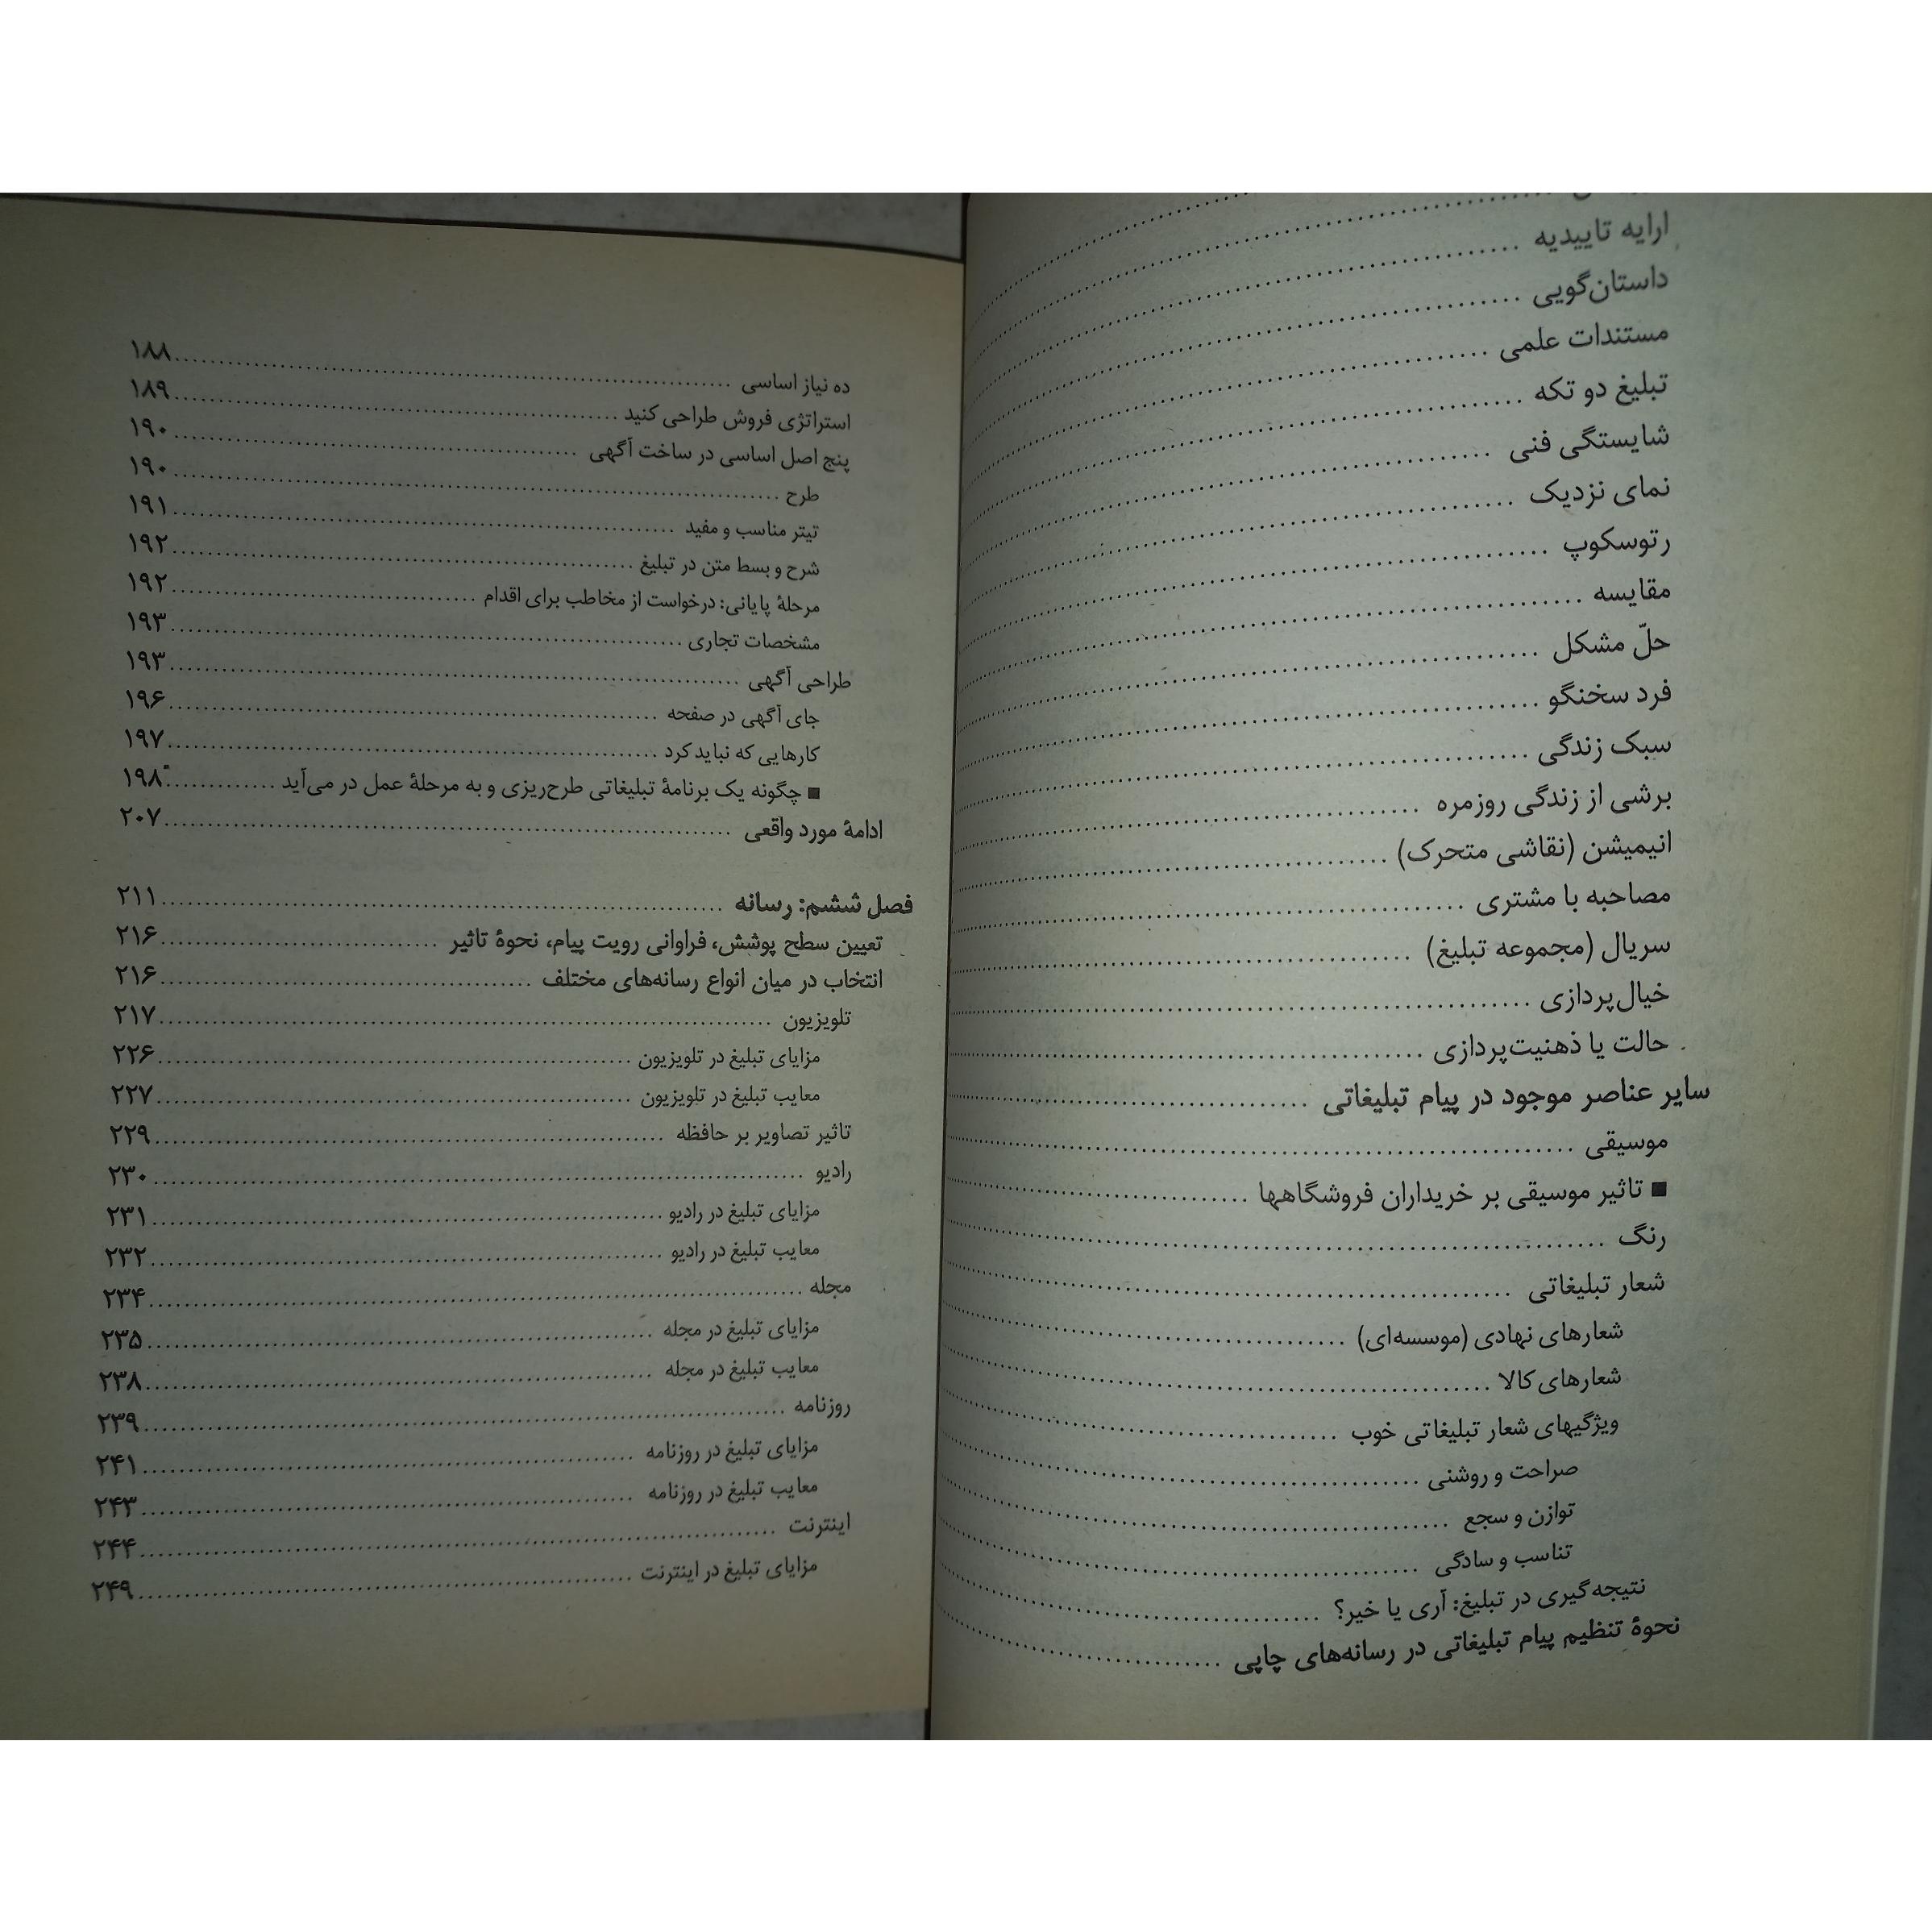 ارایه تاییدیه
داستان‌گویی
مستندات علمی
تبلیغ دو تکه
شایستگی فنی
نمای نزدیک
رتوسکوپ
مقایسه
حلّ مشکل
فرد سخنگو
سبک زندگی
برشی از زندگی روزمره
انیمیشن (نقاشی متحرک)
مصاحبه با مشتری
سریال (مجموعه تبلیغ)
خیال‌پردازی
حالت یا ذهنیت‌پردازی
سایر عناصر موجود در پیام تبلیغاتی
موسیقی
■ تاثیر موسیقی بر خریداران فروشگاهها
رنگ
شعار تبلیغاتی
شعارهای نهادی (موسسه‌ای)
شعارهای کالا
ویژگیهای شعار تبلیغاتی خوب
صراحت و روشنی
توازن و سجع
تناسب و سادگی
نتیجه‌گیری در تبلیغ: آری یا خیر؟
نحوهٔ تنظیم پیام تبلیغاتی در رسانه‌های چاپی
ده نیاز اساسی ۱۸۸
استراتژی فروش طراحی کنید ۱۸۹
پنج اصل اساسی در ساخت آگهی ۱۹۰
طرح ۱۹۰
تیتر مناسب و مفید ۱۹۱
شرح و بسط متن در تبلیغ ۱۹۲
مرحلهٔ پایانی: درخواست از مخاطب برای اقدام ۱۹۲
مشخصات تجاری ۱۹۳
طراحی آگهی ۱۹۳
جای آگهی در صفحه ۱۹۶
کارهایی که نباید کرد ۱۹۷
■ چگونه یک برنامهٔ تبلیغاتی طرح‌ریزی و به مرحلهٔ عمل در می‌آید ۱۹۸
ادامهٔ مورد واقعی ۲۰۷
فصل ششم: رسانه ۲۱۱
تعیین سطح پوشش، فراوانی رویت پیام، نحوهٔ تاثیر ۲۱۶
انتخاب در میان انواع رسانه‌های مختلف ۲۱۶
تلویزیون ۲۱۷
مزایای تبلیغ در تلویزیون ۲۲۶
معایب تبلیغ در تلویزیون ۲۲۷
تاثیر تصاویر بر حافظه ۲۲۹
رادیو ۲۳۰
مزایای تبلیغ در رادیو ۲۳۱
معایب تبلیغ در رادیو ۲۳۲
مجله ۲۳۴
مزایای تبلیغ در مجله ۲۳۵
معایب تبلیغ در مجله ۲۳۸
روزنامه ۲۳۹
مزایای تبلیغ در روزنامه ۲۴۱
معایب تبلیغ در روزنامه ۲۴۳
اینترنت ۲۴۴
مزایای تبلیغ در اینترنت ۲۴۹